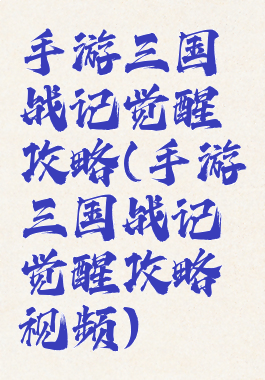 手游三国
战记觉醒
攻略(手游
三国战记
觉醒攻略
视频)